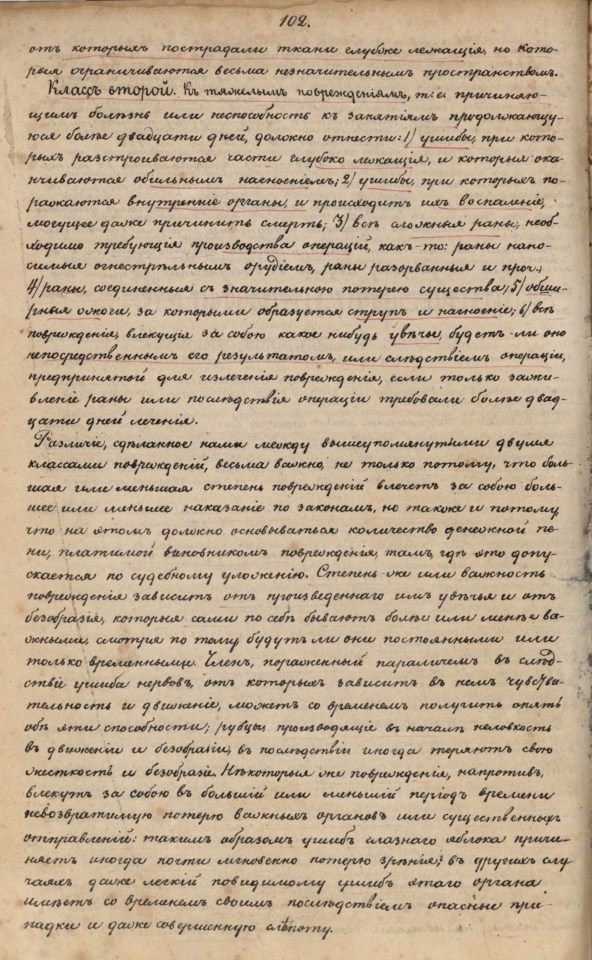 102.
отъ которыхъ пострадали ткани глубже лежащія, но кото-
рыя ограничиваются весьма незначительнымъ пространствомъ.
Классъ второй. Къ тяжелымъ поврежденіямъ, т: е: причиняю-
щимъ болѣзнь или неспособность къ занятіямъ продолжающу-
юся болѣе двадцати дней, должно отнести: 1) ушибы, при кото-
рыхъ разстроиваются части глубоко лежащія, и которыя ока-
нчиваются обильнымъ нагноеніемъ; 2) ушибы, при которыхъ по-
ражаются внутренніе органы, и происходитъ ихъ воспаленіе,
могущее даже причинить смерть; 3) всѣ сложныя раны, необ-
ходимо требующія производства операцій, какъ-то: раны нано-
симыя огнестрѣльнымъ орудіемъ, раны разорванныя и проч.;
4) раны, соединенныя съ значительною потерею существа; 5) обши-
рныя ожоги, за которыми образуется струпъ и нагноеніе; 6) всѣ
поврежденія, влекущія за собою какое нибудь увѣчье, будетъ-ли оно
непосредственнымъ его результатомъ, или слѣдствіемъ операціи,
предпринятой для излеченія поврежденія, если только зажи-
вленіе раны или послѣдствія операціи требовали болѣе двад-
цати дней леченія.
Различіе, сдѣланное нами между вышеупомянутыми двумя
классами поврежденій, весьма важно, не только потому, что боль-
шая или меньшая степень поврежденій влечетъ за собою боль-
шее или меньшее наказаніе по законамъ, но также и потому
что на этомъ должно основываться количество денежной пе-
ни, платимой виновникомъ поврежденія, тамъ, гдѣ это допу-
скается по судебному уложенію. Степень-же или важность
поврежденія зависитъ отъ произведеннаго имъ увѣчья и отъ
безобразія, которыя сами по себѣ бываютъ болѣе или менѣе ва-
жными, смотря по тому будутъ ли они постоянными или
только временными. Членъ, пораженный параличемъ въ слѣд-
ствіе ушиба нервовъ, отъ которыхъ зависитъ въ немъ чувства-
тельность и движеніе, можетъ со временемъ получить опять
обѣ эти способности; рубцы, производящіе въ началѣ неловкость
въ движеніи и безобразіи, въ послѣдствіи иногда теряютъ свою
жесткость и безобразіе. Нѣкоторыя же поврежденія, напротивъ,
влекутъ за собою въ большій или меньшій періодъ времени
невозвратимую потерю важныхъ органовъ или существенныхъ
отправленій: такимъ образомъ ушибъ глазнаго яблока причи-
няетъ иногда почти мгновенно потерю зрѣнія; въ другихъ слу
чаяхъ даже легкій повидимому ушибъ этаго органа
имѣетъ со временемъ своимъ послѣдствіемъ опасные при-
падки и даже совершенную слѣпоту.